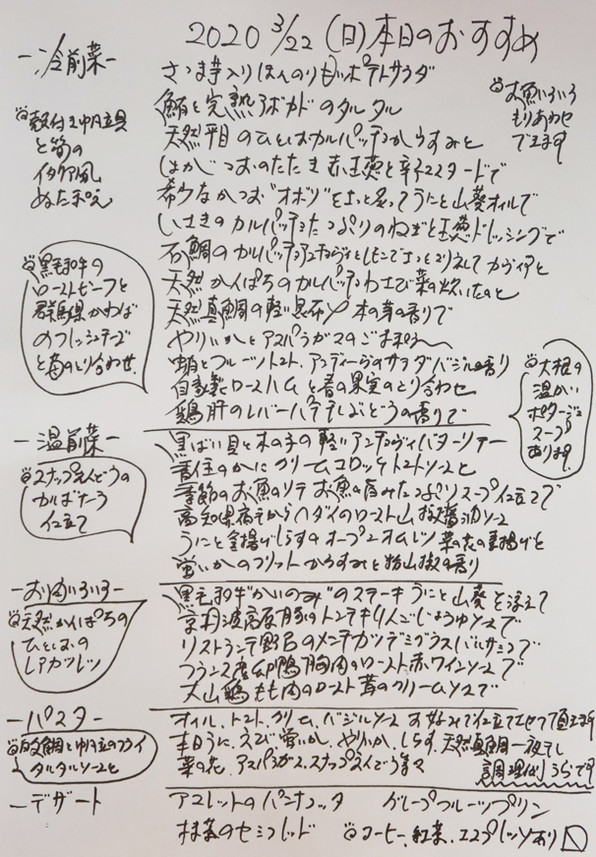 2020 3/22 (日) 本日のおすすめ
ー冷前菜ー
さつま芋入りほんのり ポテトサラダ
鮪と完熟アボカドのタルタル
お魚いろいろ
もりあわせ
できます
殻付き帆立貝
と筍の
イタリア風
ぬた和え
天然平目のひとしおカルパッチョからすみと
はがつおのたたき 赤玉葱と辛子マスタードで
希少なかつお"オボソ"をさっと炙って うにと山葵オイルで
いさきのカルパッチョ たっぷりのねぎと玉葱ドレッシングで
石鯛のカルパッチョ アンチョヴィとレモンで キャヴィアと
天然かんぱちのカルパッチョ わさび菜の と
天然真鯛の軽い昆布〆 木の芽の香りで
やりいかとアスパラガスのごま和え
蛸とフルーツトマト、アンディーヴのサラダ バジルの香り
自家製ロースハムと春の果実のとり合わせ
鶏肝のレバーパテ 干しぶどうの香りで
黒毛和牛の
ローストビーフと
群馬県かわば
のフレッシュチーズ
と苺のとり合わせ
大根の
温かい
ポタージュ
スープ
あります
ー温前菜ー
黒ばい貝と木の子の軽いアンチョヴィバターソテー
香住のかにクリームコロッケ トマトソースと
季節のお魚のソテー お魚の旨みたっぷりスープ仕立てで
高知県宿毛から ヘダイのロースト 山椒醤油ソース
うにと釜揚げしらすのオープンオムレツ 菜の花の素揚げと
蛍いかのフリット からすみと粉山椒の香り
スナップえんどうの
かるぼなーら
仕立て
ーお肉いろいろー
黒毛和牛"かいのみ"のステーキ うにと山葵を添えて
京丹波高原豚のトンテキ りんごじょうゆソースで
リストランテ野呂のメンチカツ デミグラスバルサミコで
フランス産 鴨胸肉のロースト 赤ワインソースで
大山鶏もも肉のロースト 茸のクリームソースで
天然かんぱちの
ひとしおの
レアカツレツ
ーパスター
オイル、トマト、クリーム、バジルソース お好みで仕立てさせて頂きます
本日うに、えび、蛍いか、やりいか、しらす、天然真鯛一夜干し
菜の花、アスパラガス、スナップえんどう等々
調理はしうらです
鯛と帆立のフライ
タルタルソースと
ーデザート
アメレットのパンナコッタ グレープフルーツプリン
抹茶のセミフレッド コーヒー、紅茶、エスプレッソあり